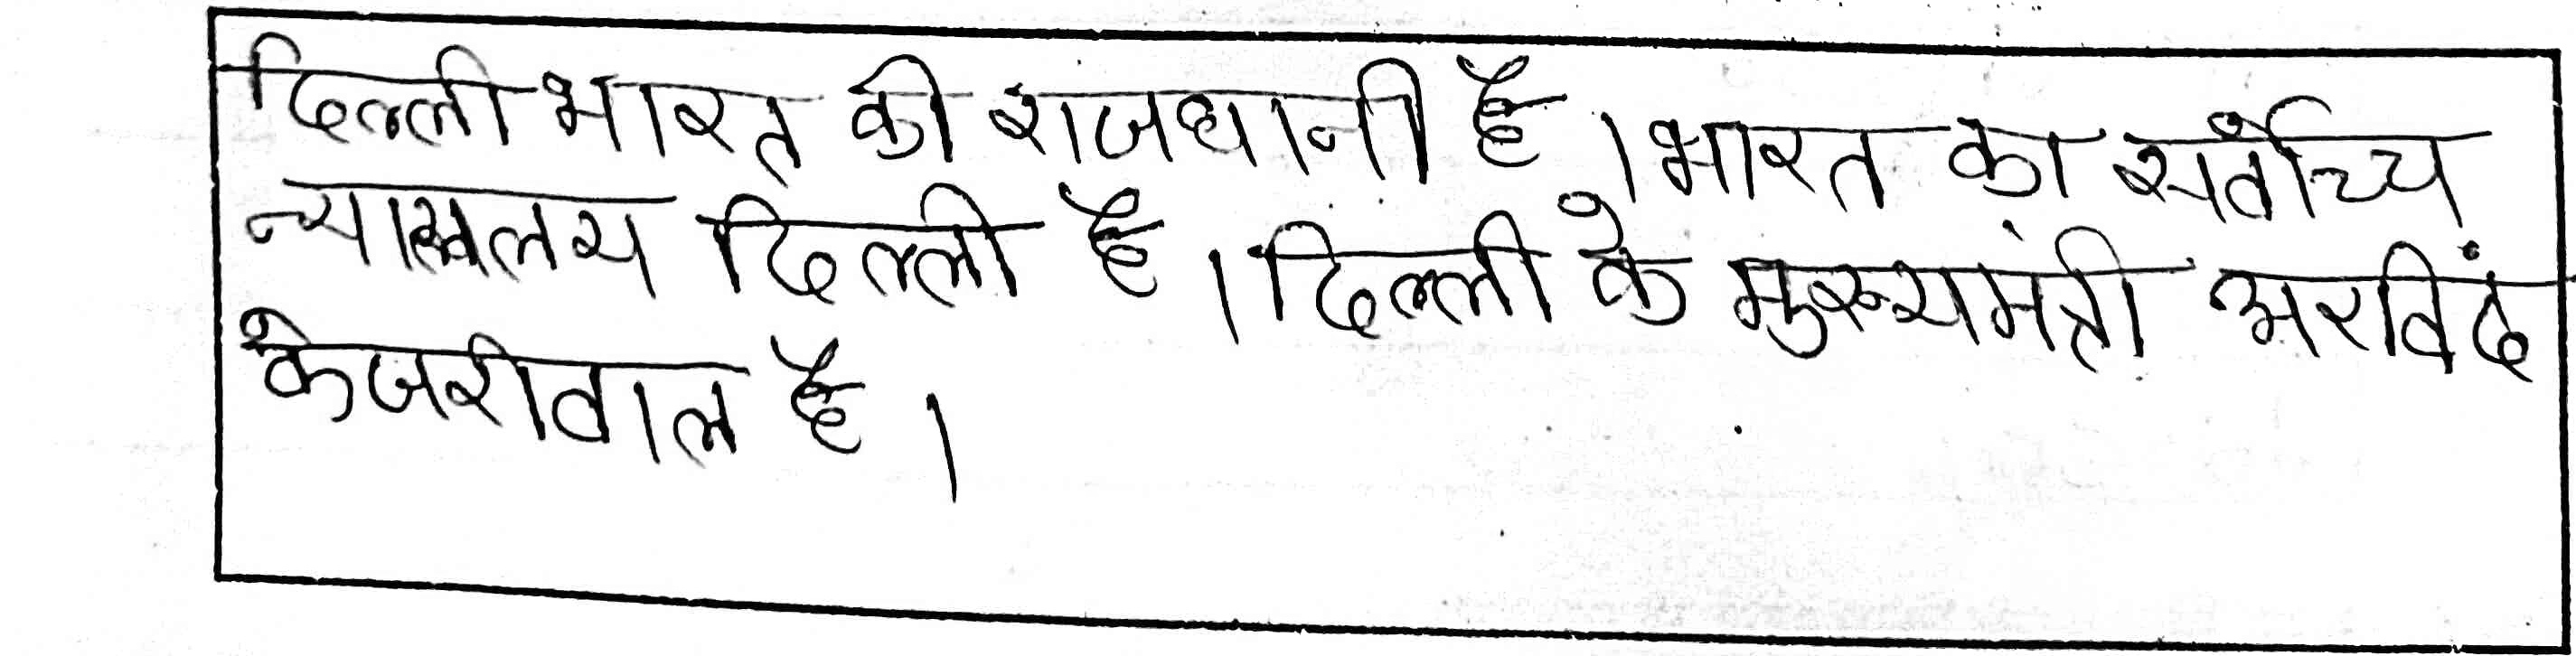 दिल्ली भारत की राजधानी है । भारत का सर्वोच्च
न्यायलय दिल्ली है । दिल्ली के मुख्यमंत्री अरविंद
केजरीवाल है ।